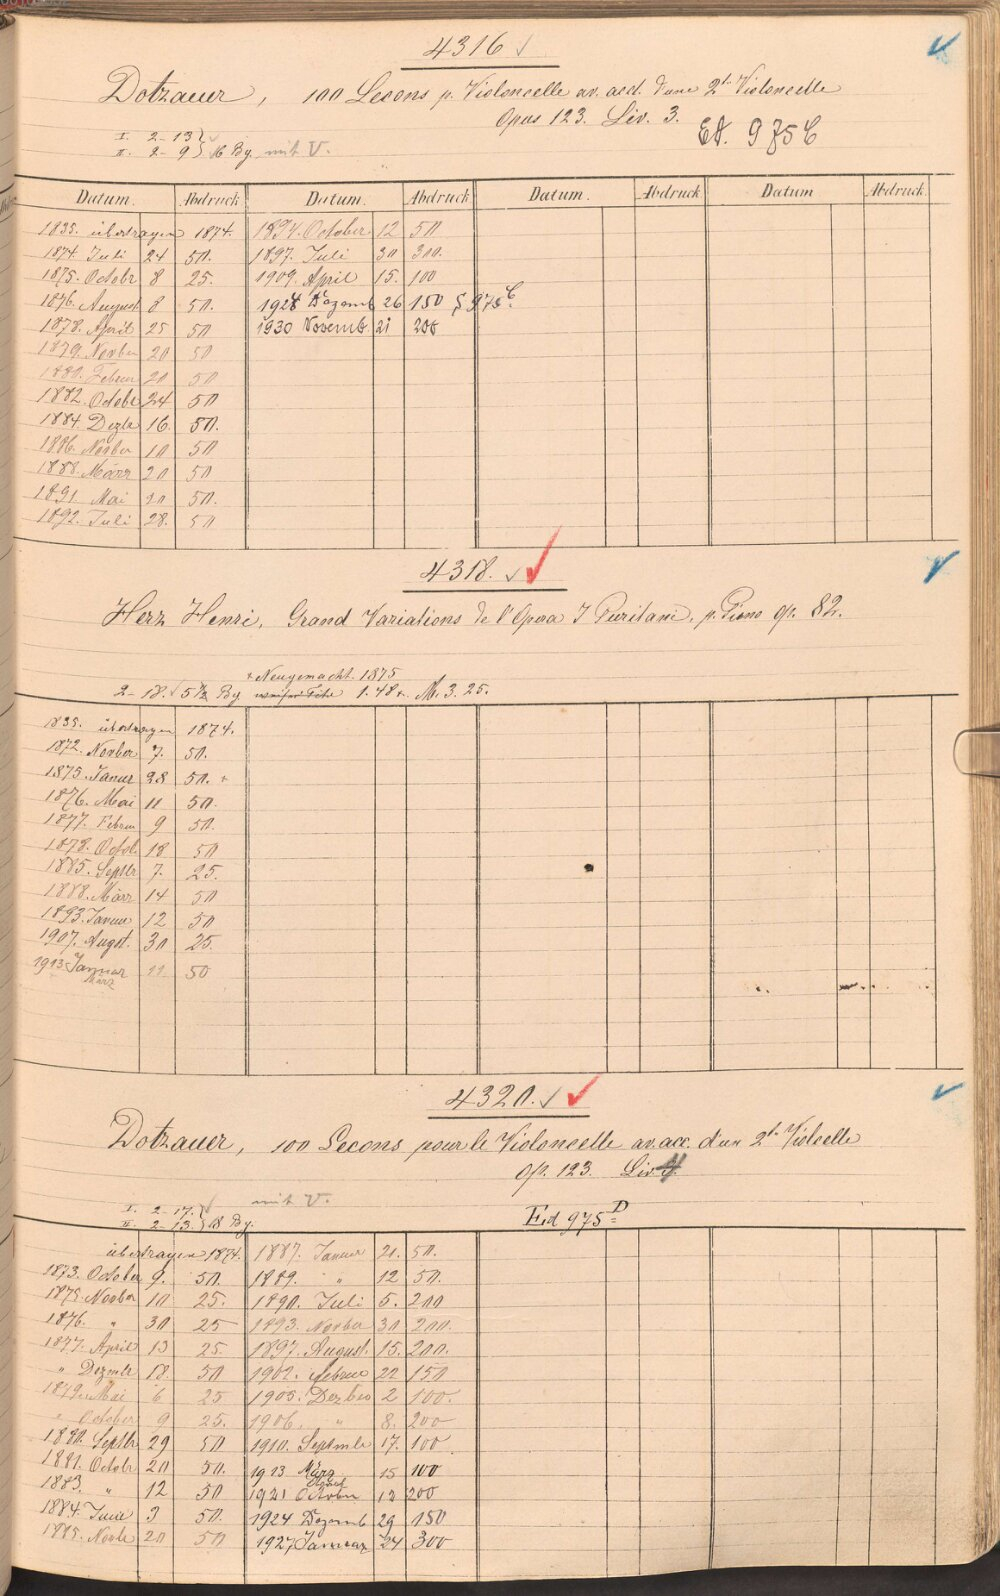 4316
Dotzauer, 100 Lecons p. Violoncelle av. acc. d'une 2t. Violoncelle
Opus 123. Liv. 3.
Ed. 975 C
I. 2-13
II. 2-9 } 16 Bg. mit V.
Datum. Abdruck Datum. Abdruck Datum. Abdruck Datum Abdruck.
1835. übertragen 1874. 1894. October 12 50
1874. Juli 24 50. 1897. Juli 30 300.
1875. Octobr 8 25. 1909. April 15. 100
1876. August 8 50. 1928 Dezemb 26 150 975 C.
1878. April 25 50 1930 Novemb 21 200
1879. Novber 20 50
1880. Februr 20 50
1882. Octobr 24 50
1884. Dezbr 16. 50.
1886. Novber 10 50
1888. März 20 50
1891 Mai 20 50.
1892. Juli 28. 50
4318.
Herz Henri, Grand Variations de l'Opera I Puritani, p. Piano op. 82.
+ Neugemacht 1875
2-18. 5 1/2 Bg 1.48+. M. 3.25.
1835. übertragen 1874.
1872. Novber 7. 50.
1875. Janur 28 50. +
1876. Mai 11 50.
1877. Februr 9 50.
1878. Octob. 18 50
1885. Septbr 7. 25.
1888. März 14 50
1893. Januar 12 50
1907. August. 30 25.
1913 Januar 11 50
März
4320.
Dotzauer, 100 Lecons pour le Violoncelle av. acc. d'un 2t. Violcelle
op. 123. Liv. 4
mit V.
I. 2-17.
II. 2-13. } 18 Bg. Ed 975 D
übertragen 1874. 1887. Januar 21. 50.
1873. October 9. 50. 1889. " 12 50.
1875. Novber 10 25. 1890. Juli 5. 200
1876. " 30 25 1893. Novber 30 200.
1877. April 13 25 1897. August. 15. 200.
" Dezmbr 18. 50 1902. Februr 22 150
1879. Mai 6 25 1905. Dezber 2 100.
" October 9 25. 1906. " 8. 200
1880. Septbr 29 50 1910. Septmbr 17. 100
1881. Octobr 20 50. 1913 März 15 100
1883. " 12 50 1921 October 12 200
1884. Juni 3 50. 1924 Dezemb 29 150
1885. Novbr 20 50 1927 Januar 24 300